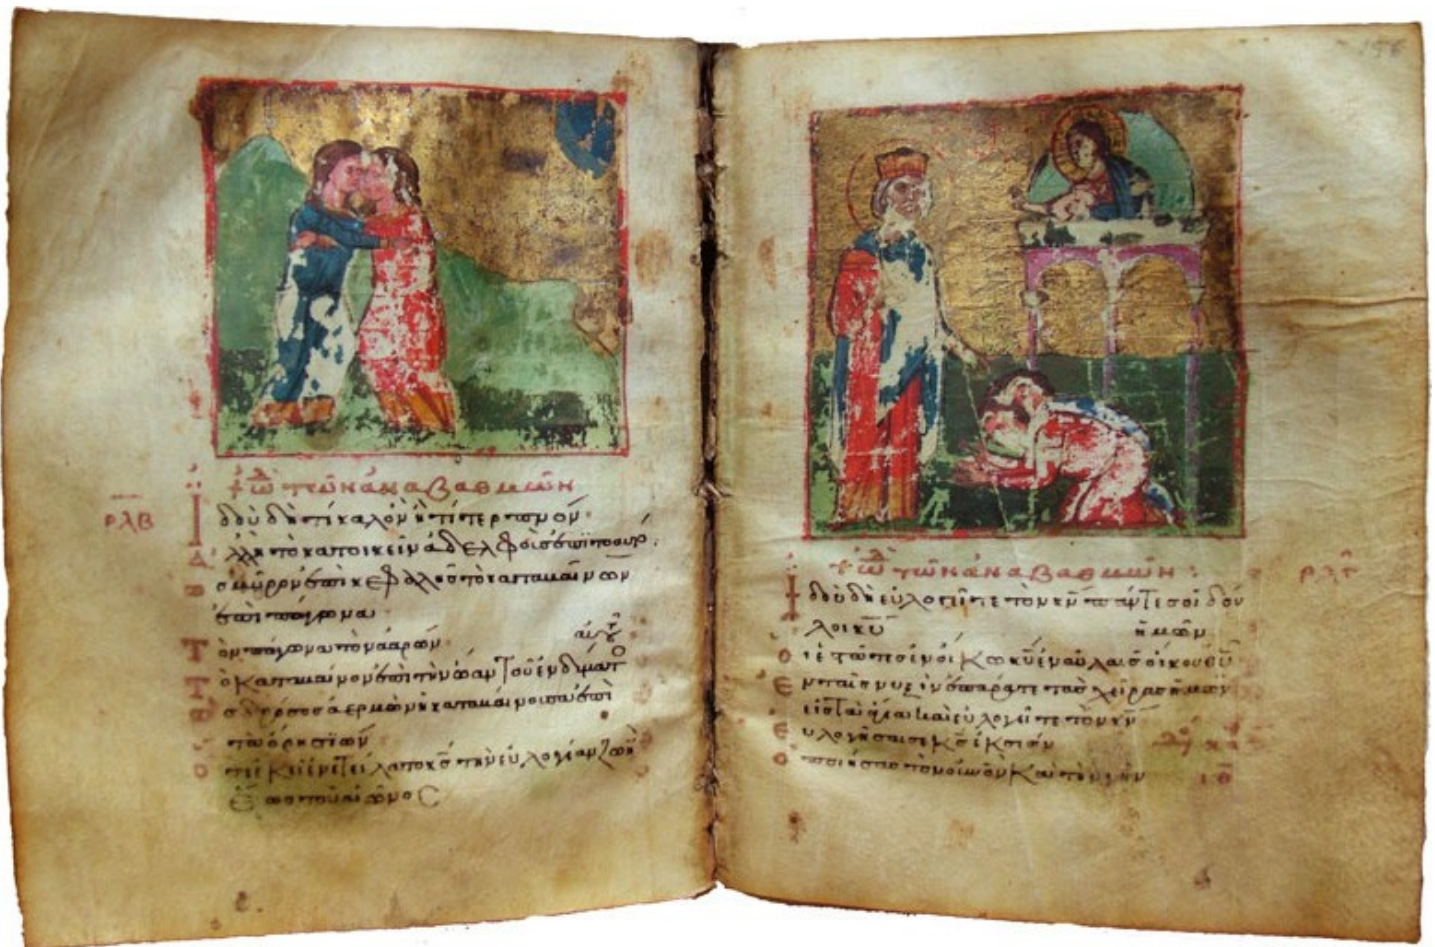 ᾠδὴ τῶν ἀναβαθμῶν
ρλβ
Ἰδοὺ δὴ τί καλὸν ἢ τί τερπνόν
ἀλλ' ἢ τὸ κατοικεῖν ἀδελφοὺς ἐπὶ τὸ
ὡς μύρον ἐπὶ κεφαλῆς τὸ καταβαῖνον
ἐπὶ πώγωνα
Τὸν πώγωνα τὸν ἀαρών
τὸ καταβαῖνον ἐπὶ τὴν ὤαν τοῦ ἐνδύματ
ὡς δρόσος ἀερμὼν ἡ καταβαίνουσα ἐπὶ
τὰ ὄρη σιών
ὅτι ἐκεῖ ἐνετείλατο κς τὴν εὐλογίαν ζωὴν
ἕως τοῦ αἰῶνος
ᾠδὴ τῶν ἀναβαθμῶν
ρλγ
Ἰδοὺ δὴ εὐλογεῖτε τὸν κν πάντες οἱ δοῦ
λοι κυ
οἱ ἑστῶτες ἐν οἴκω κυ ἐν αὐλαῖς οἴκου θυ ἡμῶν
ἐν ταῖς νυξὶν ἐπάρατε τὰς χεῖρας ὑμῶν
εἰς τὰ ἅγια καὶ εὐλογεῖτε τὸν κν
εὐλογήσαι σε κς ἐκ σιών
ὁ ποιήσας τὸν οὐνὸν καὶ τὴν γῆν